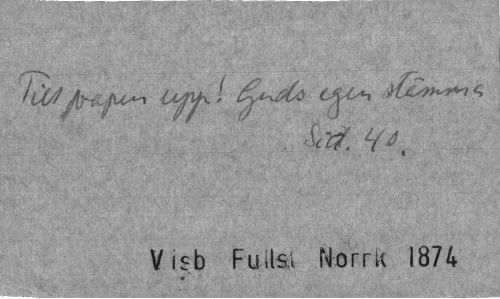 Till vapen upp! Guds egen stämma
Sid. 40.
Visb Fullst Norrk 1874